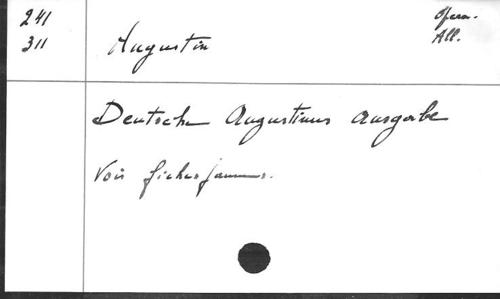 241
311
Augustin
Opera.
All.
Deutsche Augustinus Ausgabe
Voir fiches jaunes.